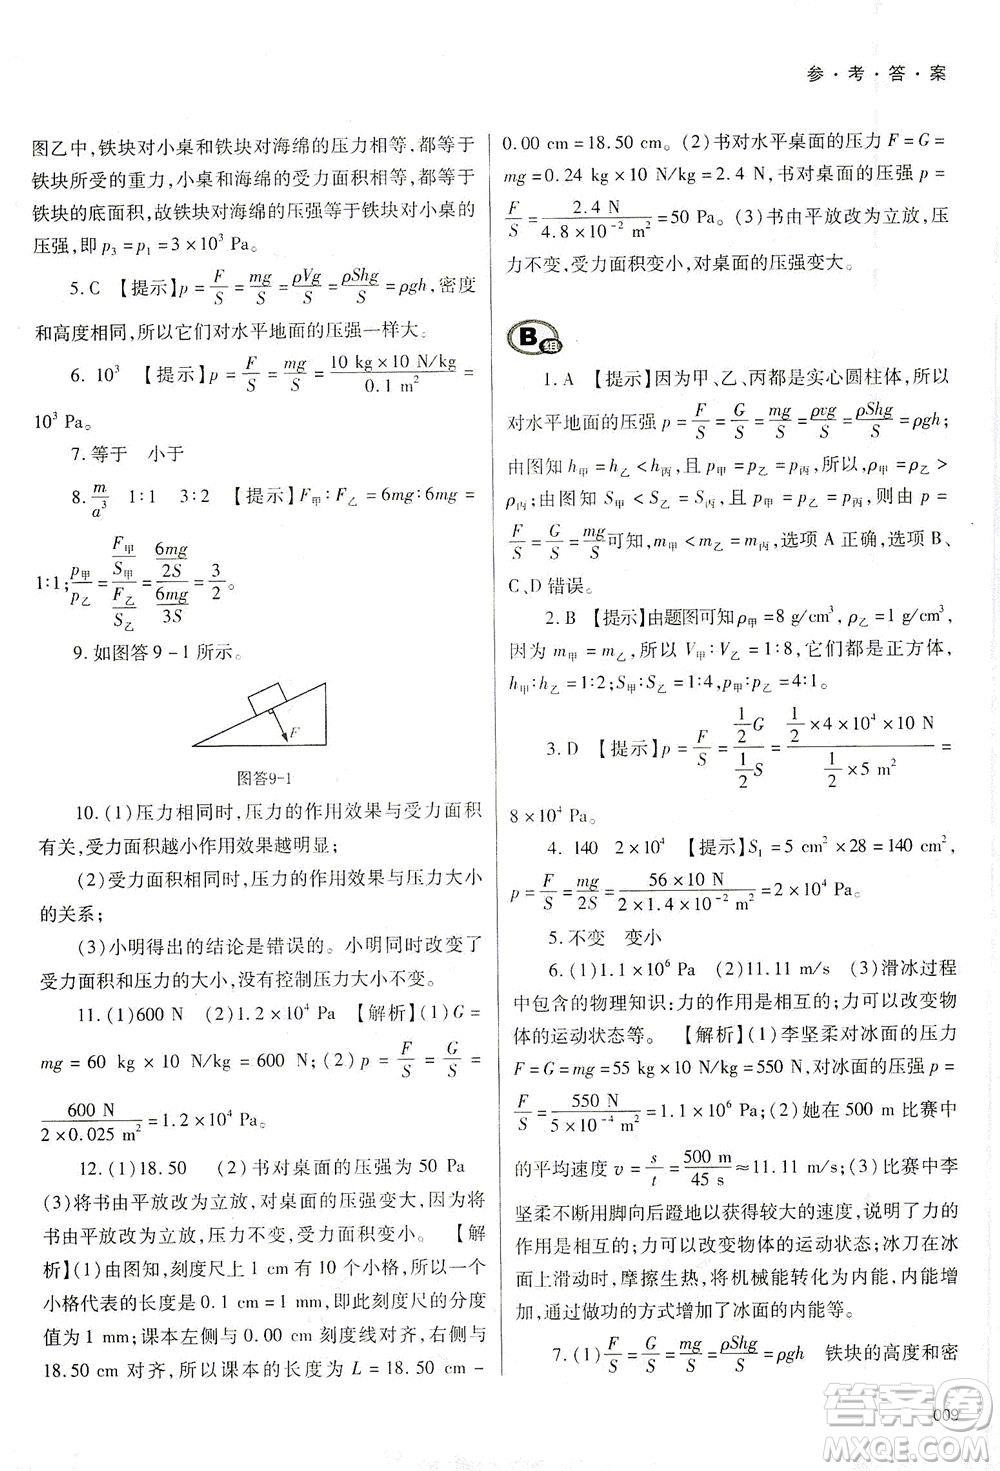 参·考·答·案
图乙中,铁块对小桌和铁块对海绵的压力相等,都等于
铁块所受的重力,小桌和海绵的受力面积相等,都等于
铁块的底面积,故铁块对海绵的压强等于铁块对小桌的
压强,即 p₃ = p₁ = 3×10³ Pa。
5. C 【提示】p = F/S = mg/S = ρVg/S = ρShg/S = ρgh,密度
和高度相同,所以它们对水平地面的压强一样大。
6. 10³ 【提示】p = F/S = mg/S = 10 kg×10 N/kg / 0.1 m² =
10³ Pa。
7. 等于 小于
8. m/a³ 1∶1 3∶2 【提示】F甲∶F乙 = 6mg∶6mg =
1∶1; p甲/p乙 = (F甲/S甲)/(F乙/S乙) = (6mg/2S)/(6mg/3S) = 3/2。
9. 如图答 9-1 所示。
F
图答9-1
10. (1)压力相同时,压力的作用效果与受力面积
有关,受力面积越小作用效果越明显;
(2)受力面积相同时,压力的作用效果与压力大小
的关系;
(3)小明得出的结论是错误的。小明同时改变了
受力面积和压力的大小,没有控制压力大小不变。
11. (1)600 N (2)1.2×10⁴ Pa 【解析】(1)G =
mg = 60 kg × 10 N/kg = 600 N; (2) p = F/S = G/S =
600 N / 2×0.025 m² = 1.2×10⁴ Pa。
12. (1)18.50 (2)书对桌面的压强为 50 Pa
(3)将书由平放改为立放,对桌面的压强变大,因为将
书由平放改为立放,压力不变,受力面积变小。 【解
析】(1)由图知,刻度尺上 1 cm 有 10 个小格,所以一个
小格代表的长度是 0.1 cm = 1 mm,即此刻度尺的分度
值为 1 mm;课本左侧与 0.00 cm 刻度线对齐,右侧与
18.50 cm 对齐,所以课本的长度为 L = 18.50 cm -
0.00 cm = 18.50 cm。(2)书对水平桌面的压力 F = G =
mg = 0.24 kg × 10 N/kg = 2.4 N,书对桌面的压强 p =
F/S = 2.4 N / 4.8×10⁻² m² = 50 Pa。(3)书由平放改为立放,压
力不变,受力面积变小,对桌面的压强变大。
B组
1. A 【提示】因为甲、乙、丙都是实心圆柱体,所以
对水平地面的压强 p = F/S = G/S = mg/S = ρvg/S = ρShg/S = ρgh;
由图知 h甲 = h乙 < h丙,且 p甲 = p乙 = p丙,所以,ρ甲 = ρ乙 >
ρ丙;由图知 S甲 < S乙 = S丙,且 p甲 = p乙 = p丙,则由 p =
F/S = G/S = mg/S 可知,m甲 < m乙 = m丙,选项 A 正确,选项 B、
C、D 错误。
2. B 【提示】由题图可知 ρ甲 = 8 g/cm³,ρ乙 = 1 g/cm³,
因为 m甲 = m乙,所以 V甲∶V乙 = 1∶8,它们都是正方体,
h甲∶h乙 = 1∶2;S甲∶S乙 = 1∶4,p甲∶p乙 = 4∶1。
3. D 【提示】p = F/S = (1/2 G)/(1/2 S) = (1/2 ×4×10⁴×10 N)/(1/2 ×5 m²) =
8×10⁴ Pa。
4. 140 2×10⁴ 【提示】S₁ = 5 cm² × 28 = 140 cm²,
p = F/S = mg/2S = 56×10 N / 2×1.4×10⁻² m² = 2×10⁴ Pa。
5. 不变 变小
6. (1)1.1×10⁶ Pa (2)11.11 m/s (3)滑冰过程
中包含的物理知识:力的作用是相互的;力可以改变物
体的运动状态等。 【解析】(1)李坚柔对冰面的压力
F = G = mg = 55 kg×10 N/kg = 550 N,对冰面的压强 p =
F/S = 550 N / 5×10⁻⁴ m² = 1.1×10⁶ Pa;(2)她在 500 m 比赛中
的平均速度 v = s/t = 500 m / 45 s ≈ 11.11 m/s;(3)比赛中李
坚柔不断用脚向后蹬地以获得较大的速度,说明了力的
作用是相互的;力可以改变物体的运动状态;冰刀在冰
面上滑动时,摩擦生热,将机械能转化为内能,内能增
加,通过做功的方式增加了冰面的内能等。
7. (1) F/S = G/S = mg/S = ρShg/S = ρgh 铁块的高度和密
009
答案圈
MXQE.COM